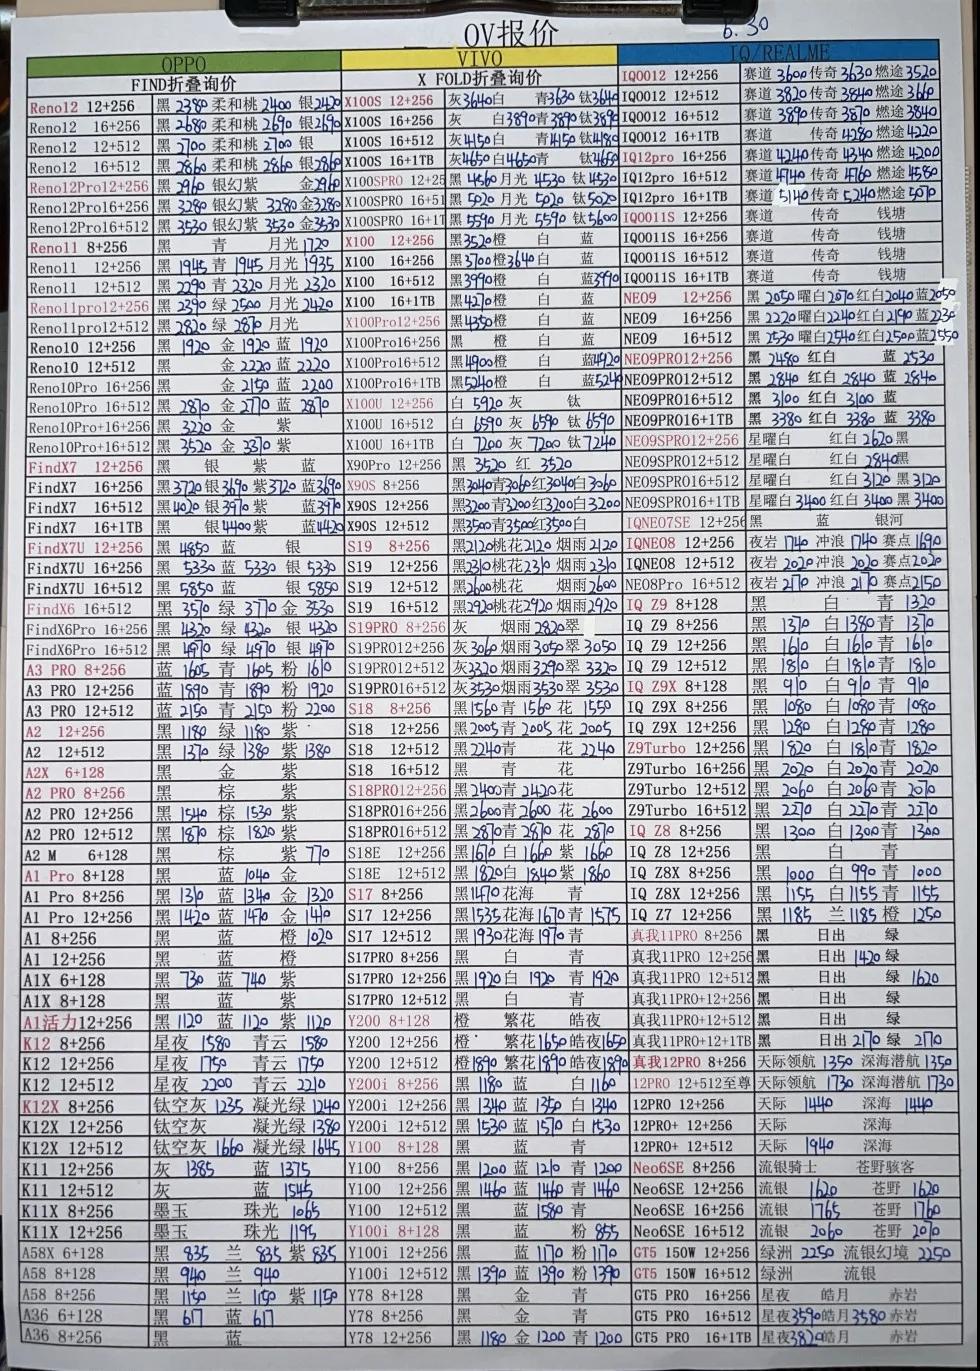 OV报价 6.30
OPPO VIVO IQ/REALME
FIND折叠询价 X FOLD折叠询价 IQOO12 12+256 赛道 3600 传奇 3630 燃途 3520
Reno12 12+256 黑 2380 柔和桃 2400 银 2420 X100S 12+256 灰 3640 白 青 3630 钛 3640 IQOO12 12+512 赛道 3820 传奇 3840 燃途
Reno12 16+256 黑 2680 柔和桃 2690 银 2690 X100S 16+256 灰 白 3890 青 3890 钛 3890 IQOO12 16+512 赛道 3890 传奇 3870 燃途 3840
Reno12 12+512 黑 2700 柔和桃 2700 银 X100S 16+512 灰 4150 白 青 4150 钛 4180 IQOO12 16+1TB 赛道 传奇 4280 燃途 4220
Reno12 16+512 黑 2860 柔和桃 2860 银 2860 X100S 16+1TB 灰 4650 白 4650 青 钛 4650 IQ12pro 16+256 赛道 4240 传奇 4340 燃途 4200
Reno12Pro12+256 黑 2960 银幻紫 金 2960 X100SPRO 12+25 黑 4560 月光 4530 钛 4530 IQ12pro 16+512 赛道 4740 传奇 4760 燃途 4580
Reno12Pro16+256 黑 3280 银幻紫 3280 金 3280 X100SPRO 16+51 黑 5020 月光 5020 钛 5020 IQ12pro 16+1TB 赛道 5140 传奇 5240 燃途 5070
Reno12Pro16+512 黑 3530 银幻紫 3530 金 3530 X100SPRO 16+1T 黑 5590 月光 5590 钛 5600 IQOO11S 12+256 赛道 传奇 钱塘
Reno11 8+256 黑 青 月光 1720 X100 12+256 黑 3520 橙 白 蓝 IQOO11S 16+256 赛道 传奇 钱塘
Reno11 12+256 黑 1945 青 1945 月光 1935 X100 16+256 黑 3700 橙 3640 白 蓝 IQOO11S 16+512 赛道 传奇 钱塘
Reno11 12+512 黑 2290 青 2320 月光 2320 X100 16+512 黑 3990 橙 白 蓝 3990 IQOO11S 16+1TB 赛道 传奇 钱塘
Reno11pro12+256 黑 2390 绿 2500 月光 2420 X100 16+1TB 黑 4270 橙 白 蓝 NEO9 12+256 黑 2050 曜白 2070 红白 2040 蓝 2050
Reno11pro12+512 黑 2820 绿 2870 月光 X100Pro12+256 黑 4350 橙 白 蓝 NEO9 16+256 黑 2220 曜白 2240 红白 2190 蓝 2230
Reno10 12+256 黑 1920 金 1920 蓝 1920 X100Pro16+256 黑 橙 白 蓝 NEO9 16+512 黑 2530 曜白 2540 红白 2500 蓝 2550
Reno10 12+512 黑 金 2220 蓝 2220 X100Pro16+512 黑 4900 橙 白 蓝 4920 NEO9PRO12+256 黑 2480 红白 蓝 2530
Reno10Pro 16+256 黑 金 2150 蓝 2200 X100Pro16+1TB 黑 5240 橙 白 蓝 5240 NEO9PRO12+512 黑 2840 红白 2840 蓝 2840
Reno10Pro 16+512 黑 2870 金 2770 蓝 2870 X100U 12+256 白 5920 灰 钛 NEO9PRO16+512 黑 3100 红白 3100 蓝
Reno10Pro+16+256 黑 3220 金 紫 X100U 16+512 白 6590 灰 6590 钛 6590 NEO9PRO16+1TB 黑 3380 红白 3380 蓝 3380
Reno10Pro+16+512 黑 3520 金 3370 紫 X100U 16+1TB 白 7200 灰 7200 钛 7240 NEO9SPRO12+256 星曜白 红白 2620 黑
FindX7 12+256 黑 银 紫 蓝 X90Pro 12+256 黑 3520 红 3520 NEO9SPRO12+512 星曜白 红白 2840 黑
FindX7 16+256 黑 3720 银 3690 紫 3720 蓝 3690 X90S 8+256 黑 3040 青 3060 红 3040 白 3060 NEO9SPRO16+512 星曜白 红白 3120 黑 3120
FindX7 16+512 黑 4020 银 3970 紫 蓝 3970 X90S 12+256 黑 3200 青 3200 红 3200 白 3200 NEO9SPRO16+1TB 星曜白 3400 红白 3400 黑 3400
FindX7 16+1TB 黑 银 4400 紫 蓝 4420 X90S 12+512 黑 3500 青 3500 红 3500 白 IQNEO7SE 12+256 黑 蓝 银河
FindX7U 12+256 黑 4850 蓝 银 S19 8+256 黑 2120 桃花 2120 烟雨 2120 IQNEO8 12+256 夜岩 1740 冲浪 1740 赛点 1690
FindX7U 16+256 黑 5330 蓝 5330 银 5330 S19 12+256 黑 2310 桃花 2310 烟雨 2310 IQNEO8 12+512 夜岩 2020 冲浪 2020 赛点 2020
FindX7U 16+512 黑 5850 蓝 银 5850 S19 12+512 黑 2600 桃花 烟雨 2600 NEO8Pro 16+256 夜岩 2170 冲浪 2170 赛点 2150
FindX6 16+512 黑 3570 绿 3770 金 3530 S19 16+512 黑 2920 桃花 2920 烟雨 2920 IQ Z9 8+128 黑 白 青 1320
FindX6Pro 16+256 黑 4320 绿 4320 银 4320 S19PRO 8+256 灰 烟雨 2820 翠 IQ Z9 8+256 黑 1370 白 1380 青 1370
FindX6Pro 16+512 黑 4970 绿 4970 银 4970 S19PRO12+256 灰 3060 烟雨 3050 翠 3050 IQ Z9 12+256 黑 1610 白 1610 青 1610
A3 PRO 8+256 蓝 1605 青 1605 粉 1610 S19PRO12+512 灰 3320 烟雨 3290 翠 3320 IQ Z9 12+512 黑 1810 白 1810 青 1810
A3 PRO 12+256 蓝 1890 青 1890 粉 1920 S19PRO16+512 灰 3530 烟雨 3530 翠 3530 IQ Z9X 8+128 黑 910 白 910 青 910
A3 PRO 12+512 蓝 2150 青 2150 粉 2200 S18 8+256 黑 1560 青 1560 花 1550 IQ Z9X 8+256 黑 1080 白 1080 青 1080
A2 12+256 黑 1180 绿 1180 紫 S18 12+256 黑 2005 青 2005 花 2005 IQ Z9X 12+256 黑 1280 白 1280 青 1280
A2 12+512 黑 1370 绿 1380 紫 1380 S18 12+512 黑 2240 青 花 2240 Z9Turbo 12+256 黑 1820 白 1810 青 1820
A2X 6+128 黑 金 紫 S18 16+512 黑 青 花 Z9Turbo 16+256 黑 2020 白 2020 青 2020
A2 PRO 8+256 黑 棕 紫 S18PRO12+256 黑 2400 青 2420 花 Z9Turbo 12+512 黑 2060 白 2060 青 2070
A2 PRO 12+256 黑 1540 棕 1530 紫 S18PRO16+256 黑 2600 青 2600 花 2600 Z9Turbo 16+512 黑 2270 白 2270 青 2270
A2 PRO 12+512 黑 1870 棕 1820 紫 S18PRO16+512 黑 2870 青 2870 花 2870 IQ Z8 8+256 黑 1300 白 1300 青 1300
A2 M 6+128 黑 棕 紫 770 S18E 12+256 黑 1670 白 1660 紫 1660 IQ Z8 12+256 黑 白 青
A1 Pro 8+128 黑 蓝 1040 金 S18E 12+512 黑 1820 白 1840 紫 1860 IQ Z8X 8+256 黑 1000 白 990 青 1000
A1 Pro 8+256 黑 1310 蓝 1340 金 1320 S17 8+256 黑 1470 花海 青 IQ Z8X 12+256 黑 1155 白 1155 青 1155
A1 Pro 12+256 黑 1420 蓝 1470 金 1410 S17 12+256 黑 1535 花海 1670 青 1575 IQ Z7 12+256 黑 1185 兰 1185 橙 1250
A1 8+256 黑 蓝 橙 1020 S17 12+512 黑 1930 花海 1970 青 真我11PRO 8+256 黑 日出 绿
A1 12+256 黑 蓝 橙 S17PRO 8+256 黑 白 青 真我11PRO 12+256 黑 日出 1420 绿
A1X 6+128 黑 730 蓝 740 紫 S17PRO 12+256 黑 1920 白 1920 青 1920 真我11PRO 12+512 黑 日出 绿 1620
A1X 8+128 黑 蓝 紫 S17PRO 12+512 黑 白 青 真我11PRO+12+256 黑 日出 绿
A1活力12+256 黑 1120 蓝 1120 紫 1120 Y200 8+128 橙 繁花 皓夜 真我11PRO+12+512 黑 日出 绿
K12 8+256 星夜 1580 青云 1580 Y200 12+256 橙 繁花 1650 皓夜 1650 真我11PRO+12+1TB 黑 日出 2170 绿 2170
K12 12+256 星夜 1750 青云 1750 Y200 12+512 橙 1890 繁花 1890 皓夜 1890 真我12PRO 8+256 天际领航 1350 深海潜航 1350
K12 12+512 星夜 2200 青云 2210 Y200i 8+256 黑 1180 蓝 白 1160 12PRO 12+512至尊 天际领航 1730 深海潜航 1730
K12X 8+256 钛空灰 1235 凝光绿 1240 Y200i 12+256 黑 1340 蓝 1350 白 1340 12PRO 12+256 天际 1440 深海 1440
K12X 12+256 钛空灰 凝光绿 1380 Y200i 12+512 黑 1530 蓝 1570 白 1530 12PRO+ 12+256 天际 深海
K12X 12+512 钛空灰 1660 凝光绿 1645 Y100 8+128 黑 蓝 青 12PRO+ 12+512 天际 1940 深海
K11 12+256 灰 1385 蓝 1375 Y100 8+256 黑 1200 蓝 1210 青 1200 Neo6SE 8+256 流银骑士 苍野骇客
K11 12+512 灰 蓝 1545 Y100 12+256 黑 1460 蓝 1460 青 1460 Neo6SE 12+256 流银 1620 苍野 1620
K11X 8+256 墨玉 珠光 1065 Y100 12+512 黑 蓝 1580 青 Neo6SE 16+256 流银 1765 苍野 1760
K11X 12+256 墨玉 珠光 1195 Y100i 8+128 黑 蓝 粉 855 Neo6SE 16+512 流银 2060 苍野 2070
A58X 6+128 黑 835 兰 835 紫 835 Y100i 12+256 黑 蓝 1170 粉 1170 GT5 150W 12+256 绿洲 2250 流银幻境 2250
A58 8+128 黑 940 兰 940 Y100i 12+512 黑 1390 蓝 1390 粉 1390 GT5 150W 16+512 绿洲 流银
A58 8+256 黑 1150 兰 1150 紫 1150 Y78 8+128 黑 金 青 GT5 PRO 16+256 星夜 皓月 赤岩
A36 6+128 黑 617 蓝 617 Y78 8+256 黑 金 青 GT5 PRO 16+512 星夜 3590 皓月 3580 赤岩
A36 8+256 黑 蓝 Y78 12+256 黑 1180 金 1200 青 1200 GT5 PRO 16+1TB 星夜 3820 皓月 赤岩